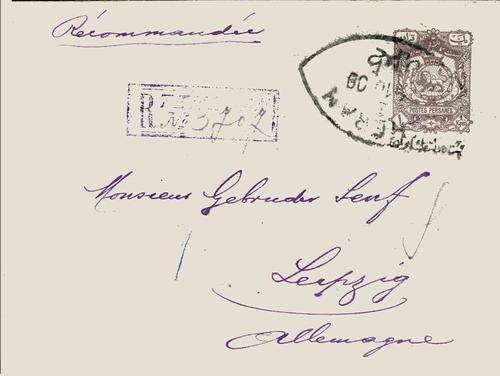 Récommandée
POSTES PERSANES
R
No 3707
Monsieur Gebruder Senf
Leipzig
Allemagne